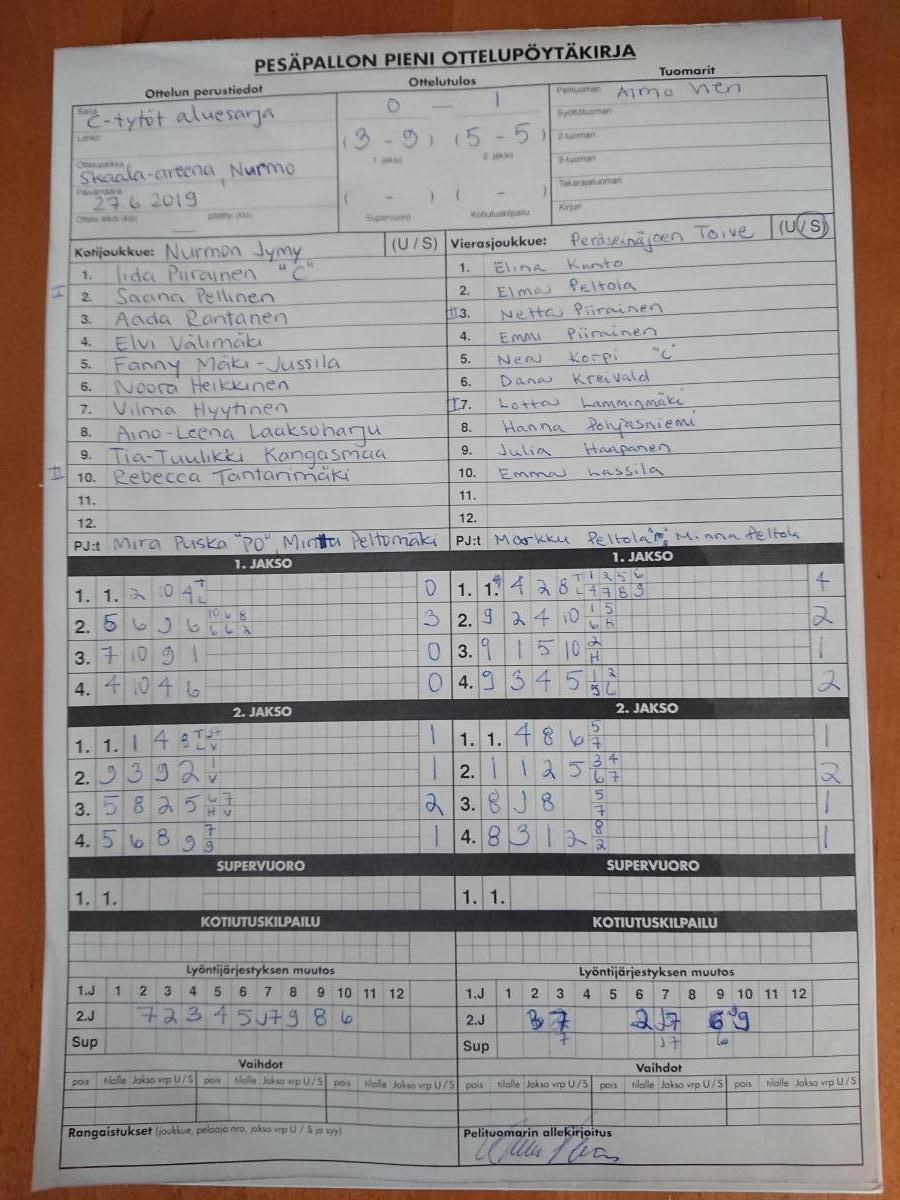 PESÄPALLON PIENI OTTELUPÖYTÄKIRJA
Ottelun perustiedot Ottelutulos Tuomarit
Sarja C-tytöt aluesarja
Lohko
Ottelupaikka Skaala-areena, Nurmo
Päivämäärä 27.6 2019
Ottelu alkoi (klo) päättyi (klo)
0 — 1
(3 - 9) (5 - 5)
1. jakso 2. jakso
( - ) ( - )
Supervuoro Kotiutuskilpailu
Pelituomari Aimo
Syöttötuomari
2-tuomari
3-tuomari
Takarajatuomari
Kirjuri
Kotijoukkue: Nurmon Jymy (U/S)
I
II
1. Iida Piirainen "C"
2. Saana Pellinen
3. Aada Rantanen
4. Elvi Välimäki
5. Fanny Mäki-Jussila
6. Noora Heikkinen
7. Vilma Hyytinen
8. Aino-Leena Laaksoharju
9. Tia-Tuulikki Kangasmaa
10. Rebecca Tantarimäki
11.
12.
PJ:t Mira Puska "PO", Minttu Peltomäki
Vierasjoukkue: Peräseinäjoen Toive (U/S)
1. Elina Kanto
2. Elma Peltola
II 3. Netta Piirainen
4. Emmi Piirainen
5. Nea Korpi "C"
6. Dana Kreivald
I 7. Lotta Lamminmäki
8. Hanna Pohjasniemi
9. Julia Haapanen
10. Emma Lassila
11.
12.
PJ:t Markku Peltola, Minna Peltola
1. JAKSO
1. 1. 2 10 4 T L 0
2. 5 6 9 6 10 6 8 6 6 2 3
3. 7 10 9 1 0
4. 4 10 4 6 0
1. JAKSO
1. 1. 4 2 8 T 1 2 5 6 L 4 7 8 9 4
2. 9 2 4 10 1 5 6 8 2
3. 9 1 5 10 2 H 1
4. 9 3 4 5 1 2 5 6 2
2. JAKSO
1. 1. 1 4 8 1
2. 9 3 9 2 1 V 1
3. 5 8 2 5 6 7 H V 2
4. 5 6 8 9 7 9 1
2. JAKSO
1. 1. 4 8 6 5 7 1
2. 1 1 2 5 3 4 6 7 2
3. 8 J 8 5 7 1
4. 8 3 1 2 8 2 1
SUPERVUORO SUPERVUORO
1. 1. 1. 1.
KOTIUTUSKILPAILU KOTIUTUSKILPAILU
Lyöntijärjestyksen muutos
1.J 1 2 3 4 5 6 7 8 9 10 11 12
2.J 7 2 3 4 5 J7 9 8 6
Sup
Lyöntijärjestyksen muutos
1.J 1 2 3 4 5 6 7 8 9 10 11 12
2.J 3 7 2 J7 6 9
Sup 7 J7 6
Vaihdot Vaihdot
pois tilalle Jakso vrp U/S pois tilalle Jakso vrp U/S pois tilalle Jakso vrp U/S
pois tilalle Jakso vrp U/S pois tilalle Jakso vrp U/S pois tilalle Jakso vrp U/S
Rangaistukset (joukkue, pelaaja nro, jakso vrp U / S ja syy)
Pelituomarin allekirjoitus